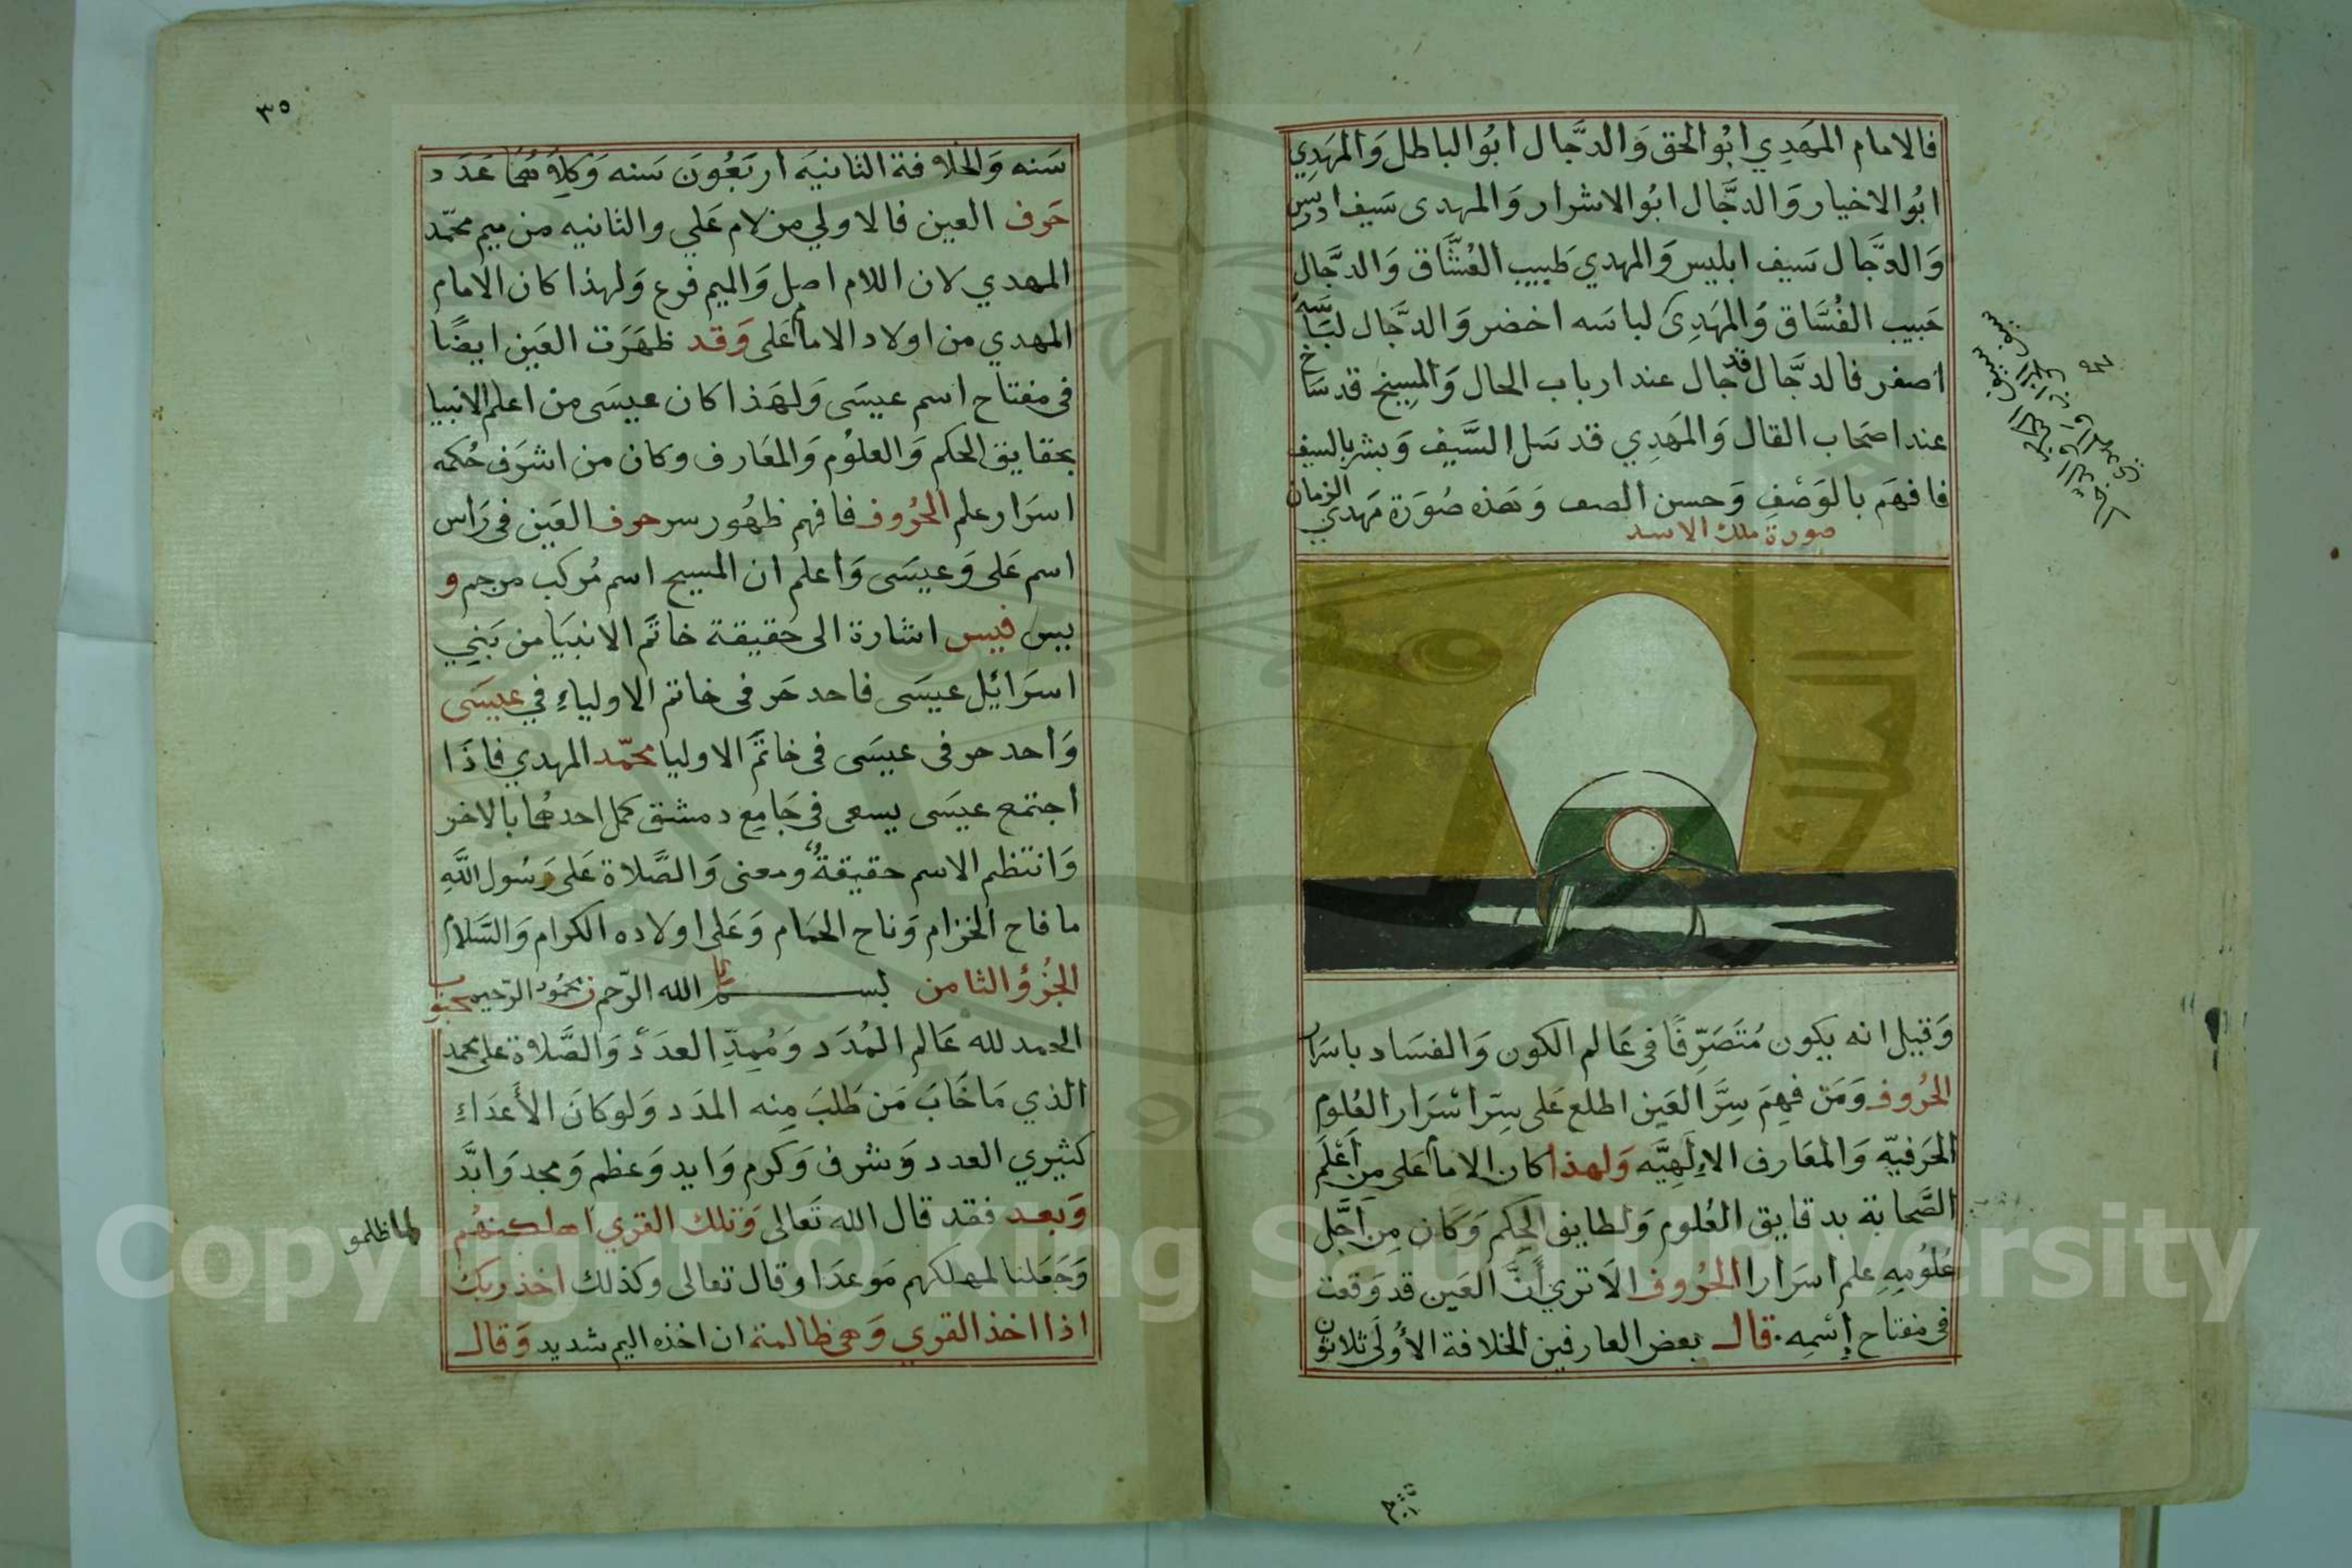 فالامام المَهدِي ابُوالحق وَالدَّجال ابُوالباطل وَالمَهدِي
ابُوالاخيار وَالدَجَّال ابُوالاشرار وَالمهدى سَيف ادريس
وَالدَّجال سَيف ابليس وَالمهدي طَبيب العُشَّاق وَالدجَّال
حَبيب الفُسَّاق وَالمَهدِى لباسَه اخضر وَالدجَّال لباسَه
اصفر فالدجَّال قد جال عند ارباب الحال وَالمسِيح قد سَاخ
عند اصحَاب القال وَالمَهدِي قد سَل السَّيف وَبشر بالسيف
فافهَم بالوَصْفِ وَحسن الصف وَهَذه صُورَة مَهدي الزمان
صورة ملك الاسد
وَقيل انه يكون مُتَصَرِّفًا فى عَالم الكون وَالفسَاد باسرار
الحُروف وَمَنْ فهِمَ سِرَّ العَين اطلع عَلى سِرّ اسْرَار العُلوم
الحَرفيّه وَالمعَارف الاِلَهيَّه وَلهذا كان الامام عَلى مِن أَعْلَم
الصَّحابة بدقايق العُلوم وَلطايف الحِكم وَكَان مِن أجَّل
عُلُومِه علم اسَرار الحُروف الاَ تري أنَّ العَين قد وَقعت
فى مفتاح إسْمِه. قال بعض العارفين الخلافة الأُولَى ثلاثون
٣٥
سَنه وَالخلافة الثانيَه اربَعُونَ سَنه وَكلاهُما عَدَد
حَرف العين فالاولي من لام عَلي والثانيه من ميم محمّد
المهدي لان اللام اصل وَالميم فرع وَلهذا كان الامام
المهدي من اولاد الامام عَلى وَقد ظهَرَت العَين ايضًا
فى مفتاح اسم عيسَى وَلهَذا كان عيسَى من اعلم الانبيا
بحقايق الحكم وَالعلوُم وَالمعَارف وكان من اشرَف حُكمه
اسرَار علم الحُرُوف فافهم ظهُور سر حرف العَين فى رَاس
اسم عَلى وَعيسَى وَاعلم ان المسيح اسم مُركب من جم و
بيس فيس اشارة الى حَقيقة خاتَم الانبيَا من بَنِي
اسرَائيل عيسَى فاحد حَرفى خاتم الاولياءِ في عيسَى
وَاحد حرفى عيسَى فى خاتَم الاوليا محمّد المهدي فاذَا
اجتمع عيسَى يسعى فى جَامِع دمشق كمل احدهُما بالاخر
وَانتظم الاسم حقيقةً ومعنى وَالصَّلاة عَلى رَسُول اللَّهِ
ما فاح الخزام وَناح الحمَام وَعَلى اولاده الكرام وَالسَّلام
الجُزؤ الثامن بسم الله الرّحمن الرّحيم
الحمد لله عَالم المُدَد وَمُمِدِّ العدَدْ وَالصَّلاة على محمد
الذي مَا خَابَ مَن طَلبَ مِنه المدَد وَلو كانَ الأَعدَاءِ
كثيري العدد وَشرف وَكرم وَايد وَعظم وَمجد وَابدَّ
وَبعد فقد قال الله تَعالى وَتلك القري اهلكنهُم
لما ظلمو
وَجَعلنا لمهلكهم مَوعدَا وقال تعالى وكذلك اخذ ربك
اذا اخذ القوي وَهى ظالمة ان اخذه اليم شديد وَقال
Copyright © King Saud University